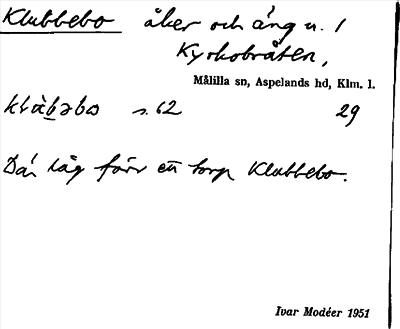 Klubbebo åker och äng u. 1
Kyrkobråten,
Målilla sn, Aspelands hd, Klm. l.
s. 62 29
Där låg förr ett torp Klubbebo.
Ivar Modéer 1951